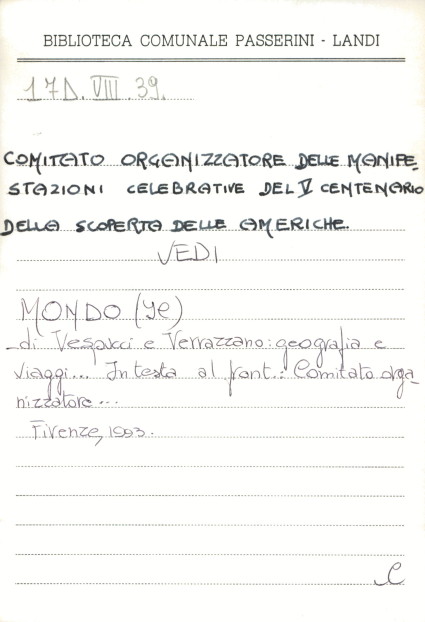 BIBLIOTECA COMUNALE PASSERINI - LANDI
17D. VIII. 39.
COMITATO ORGANIZZATORE DELLE MANIFE-
STAZIONI CELEBRATIVE DEL V CENTENARIO
DELLA SCOPERTA DELLE AMERICHE.
VEDI
MONDO (Il)
di Vespucci e Verrazzano: geografia e
viaggi... In testa al front.: Comitato orga-
nizzatore...
Firenze, 1993.
C